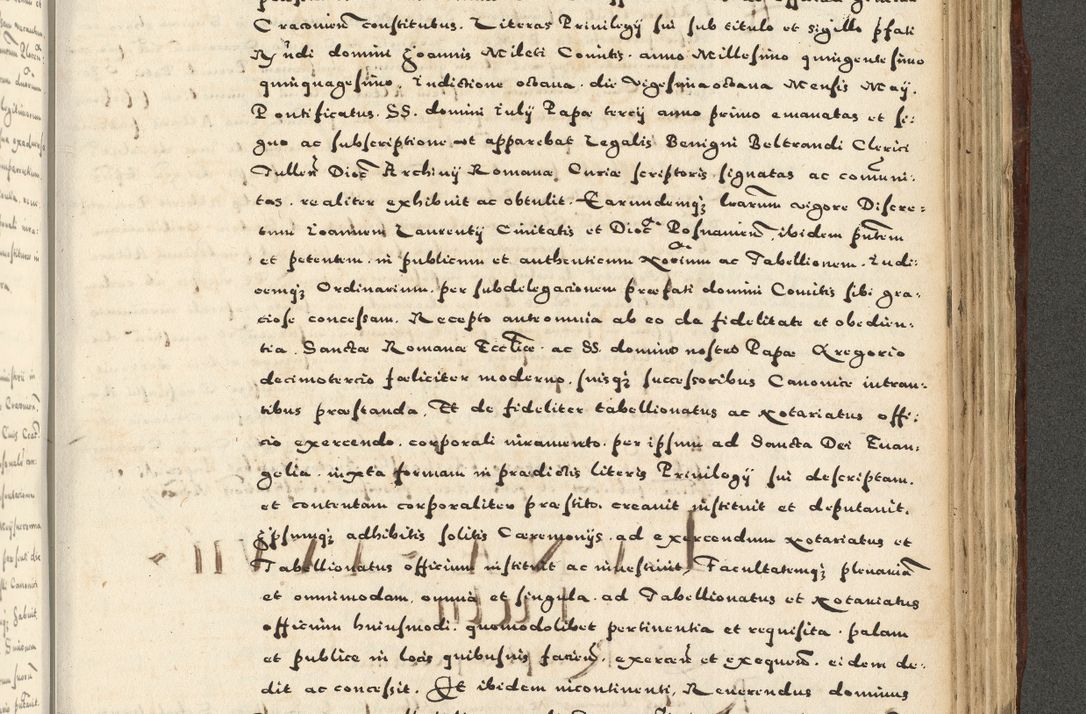 Cracovien̄ constitutus. Literas Privilegÿ sui sub titulo et sigillo p̄fati
Rn̄di domini Joannis Mileti Comitis. anno Millesimo quingentesimo
quinquagesimo, Indictione octava. die vigesima octava Mensis Maÿ.
Pontificatus. SS. domini Iulÿ Papæ tercÿ anno primo emanatas et si:
gno ac subscriptione ut apparebat Legalis Benigni Beltrandi Clerici
Tullen̄ Dioc̄ Archivÿ Romanæ Curiæ scriptoris signatas ac com̄uni:
tas. realiter exhibuit ac obtulit. Earundemq; lrārum vigore Discre:
tum Ioannem Laurentÿ Civitatis et Dioc̄ Posnanien̄, ibidem pn̄tem
et petentem. in publicum et authenticum Notarium ac Tabellionem. Iudi:
cemq; Ordinarium. per subdelegacionem præfati domini Comitis sibi gra:
ciose concessam. Recepto antromnia ab eo da fidelitate et obedien:
tia. Sanctæ Romanæ Eccl̄iæ. ac SS. domino nostro Papæ Gregorio
decimotercio fæliciter moderno. suisq; successoribus Canonice intran:
tibus præstanda. Et de fideliter tabellionatus ac Notariatus offi:
cio exercendo. corporali iuramento. per ipsum ad Sancta Dei Evan:
gelia. iuxta formam in prædictis literis Privilegÿ sui descriptam.
et contentam corporaliter præstito. creavit instituit et deputavit.
Ipsumq; adhibitis solitis Cæremonÿs. ad exercendum Notariatus et
Tabellionatus officium instituit ac investivit, Facultatemq; plenariā
et omnimodam. omnia et singula. ad Tabellionatus et Notariatus
officium huiusmodi. quomodolibet pertinentia et requisita. palam
et publice in locis quibusvis facien̄, exercen̄ et exequen̄. eidem de:
dit ac concessit. Et ibidem incontinenti, Reverendus dominus